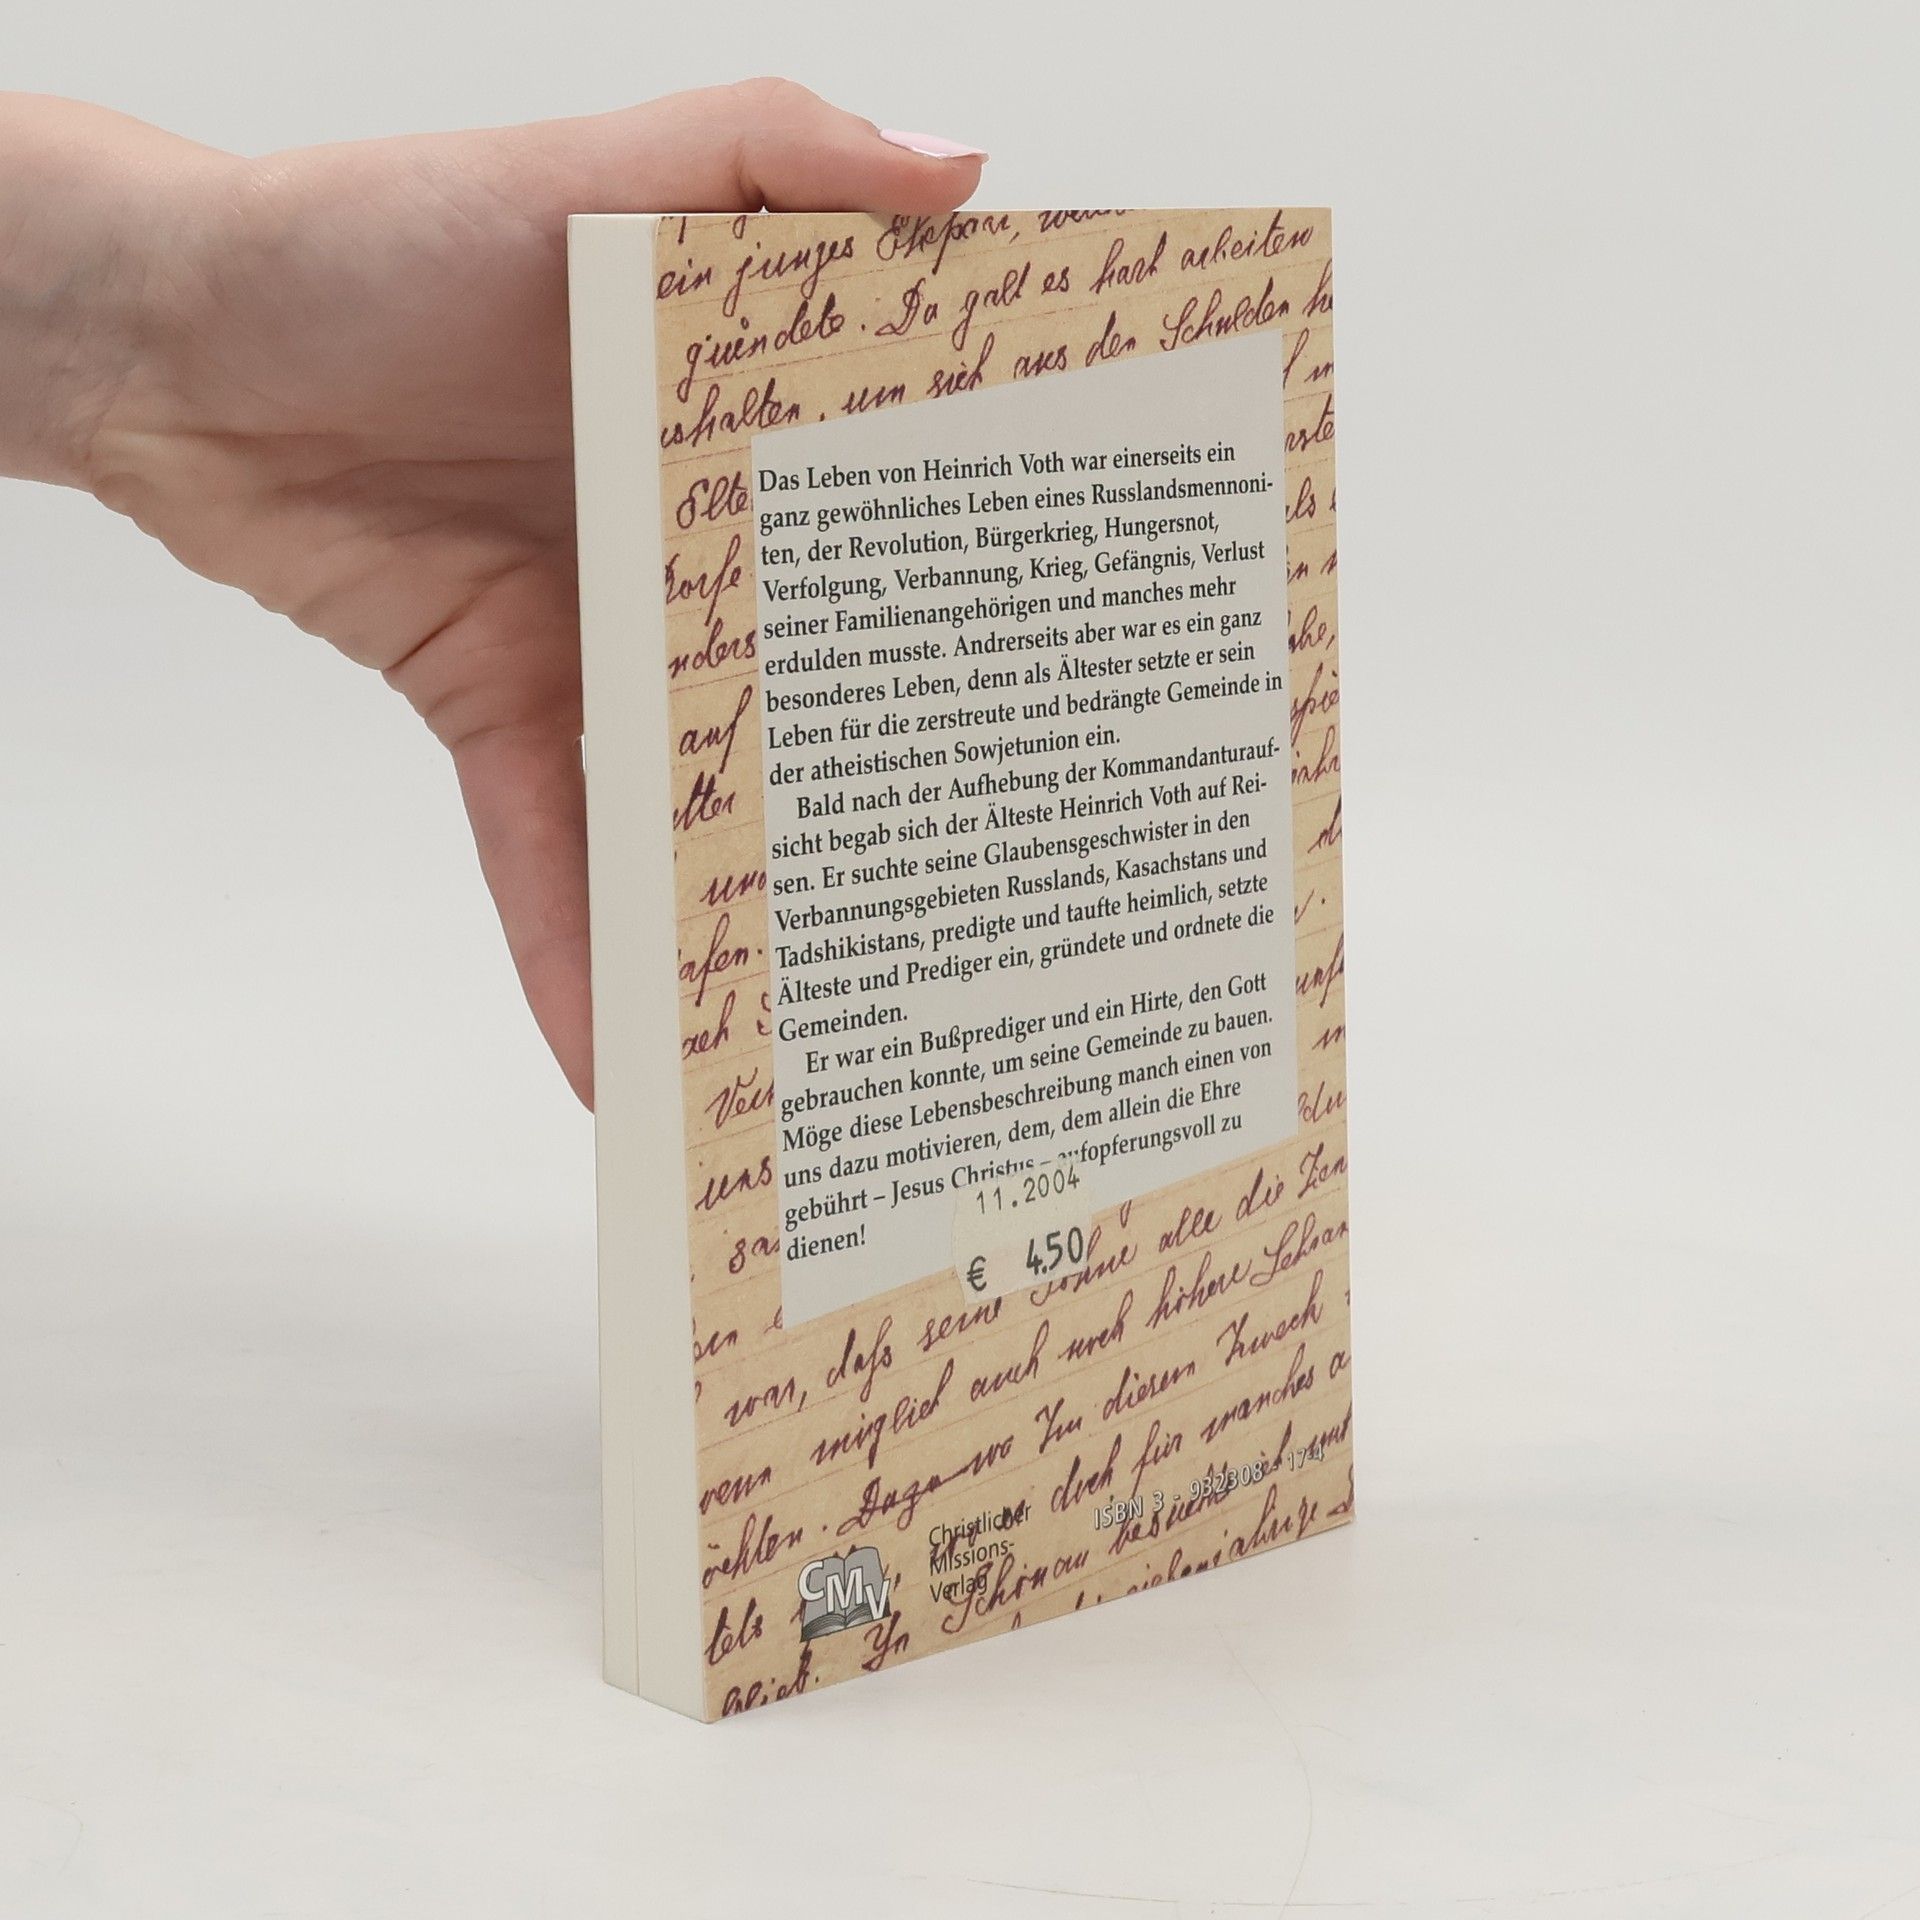 ein junges Ehepaar,
gründete. Da galt es hart arbeiten
um sich aus den Schulden
Das Leben von Heinrich Voth war einerseits ein
ganz gewöhnliches Leben eines Russlandsmennoni-
ten, der Revolution, Bürgerkrieg, Hungersnot,
Verfolgung, Verbannung, Krieg, Gefängnis, Verlust
seiner Familienangehörigen und manches mehr
erdulden musste. Andrerseits aber war es ein ganz
besonderes Leben, denn als Ältester setzte er sein
Leben für die zerstreute und bedrängte Gemeinde in
der atheistischen Sowjetunion ein.
Bald nach der Aufhebung der Kommandanturauf-
sicht begab sich der Älteste Heinrich Voth auf Rei-
sen. Er suchte seine Glaubensgeschwister in den
Verbannungsgebieten Russlands, Kasachstans und
Tadshikistans, predigte und taufte heimlich, setzte
Älteste und Prediger ein, gründete und ordnete die
Gemeinden.
Er war ein Bußprediger und ein Hirte, den Gott
gebrauchen konnte, um seine Gemeinde zu bauen.
Möge diese Lebensbeschreibung manch einen von
uns dazu motivieren, dem, dem allein die Ehre
gebührt – Jesus Christus – aufopferungsvoll zu
dienen!
11.2004
€ 4.50
auf
uns
war, daß seine Söhne alle die
wenn möglich auch noch höhere
Dazu wo Im diesem Zweck
doch für manches
In Schönau
CMV
Christlicher
Missions-
Verlag
ISBN 3 - 932308 - 17-4